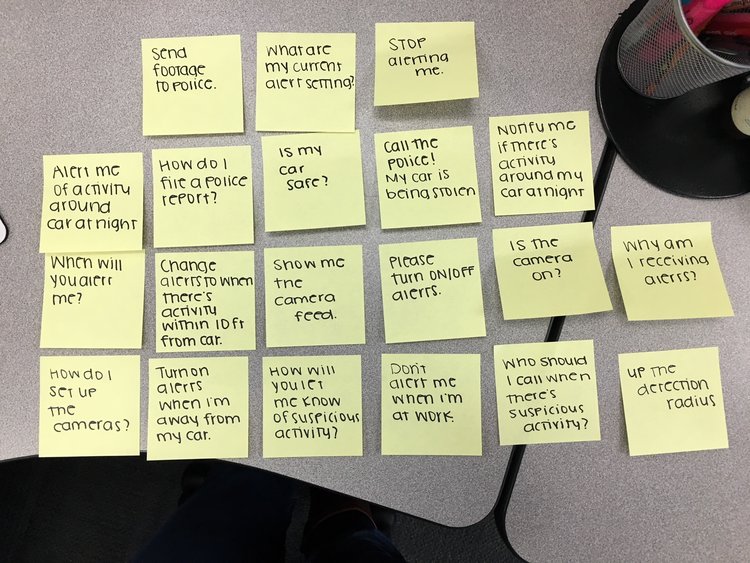 Send
footage
to police.
What are
my current
alert setting?
STOP
alerting
me.
Alert me
of activity
around
car at night
How do I
file a police
report?
Is my
car
safe?
Call the
police!
My car is
being stolen
Notify me
if there's
activity
around my
car at night
When will
you alert
me?
Change
alerts to when
there's
activity
within 10ft
from car.
Show me
the
camera
feed.
Please
turn on/off
alerts.
Is the
camera
on?
Why am
I receiving
alerts?
How do I
set up
the
cameras?
Turn on
alerts
when i'm
away from
my car.
How will
you let
me know
of suspicious
activity?
Don't
alert me
when I'm
at work.
Who should
I call when
there's
suspicious
activity?
up the
detection
radius